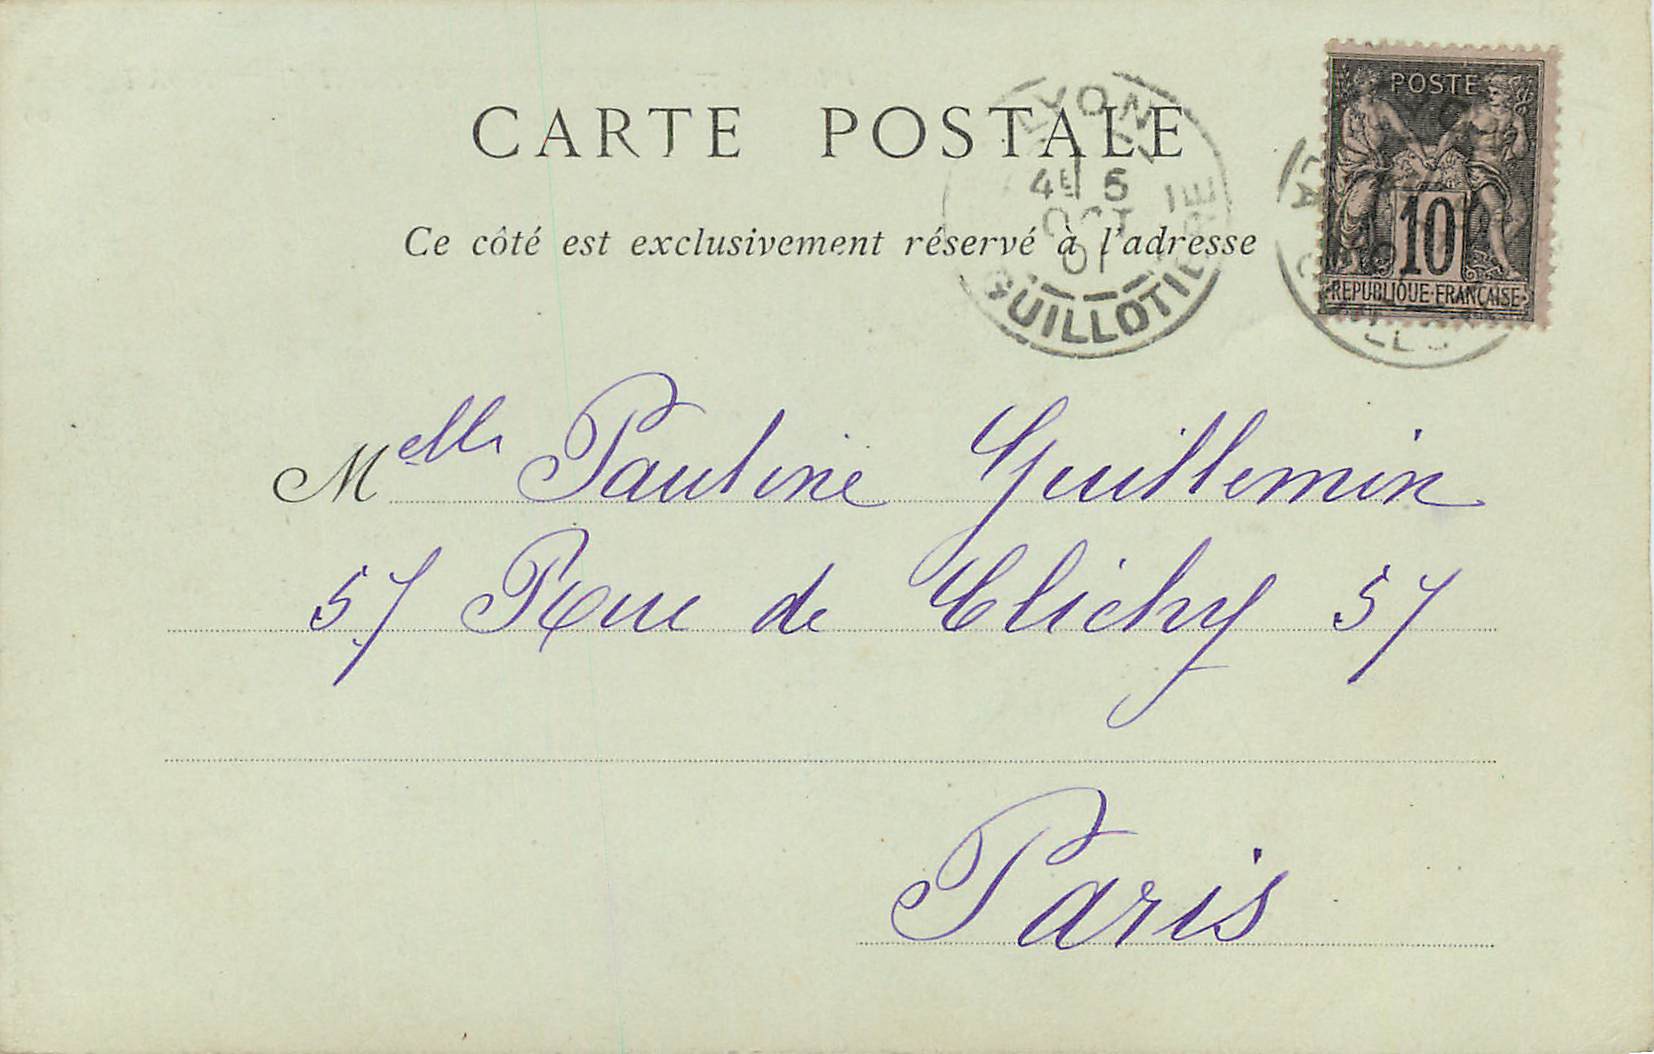 POSTE
CARTE POSTALE
LYON
4E 5
OCT
01
GUILLOTIERE
10
REPUBLIQUE FRANÇAISE
Ce côté est exclusivement réservé à l'adresse
Melle Pauline Guillemin
57 Rue de Clichy 57
Paris